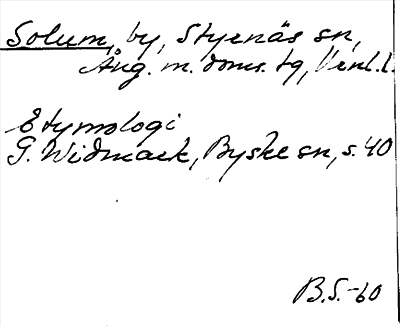 Solum, by, Styrnäs sn,
Ång. m. doms. tg, Vnl. l.
Etymologi
G. Widmark, Byske sn, s. 40
B.S.-60